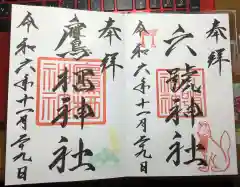 奉拝
六號神社
令和六年十一月二十九日
奉拝
鷹栖神社
令和六年十一月二十九日